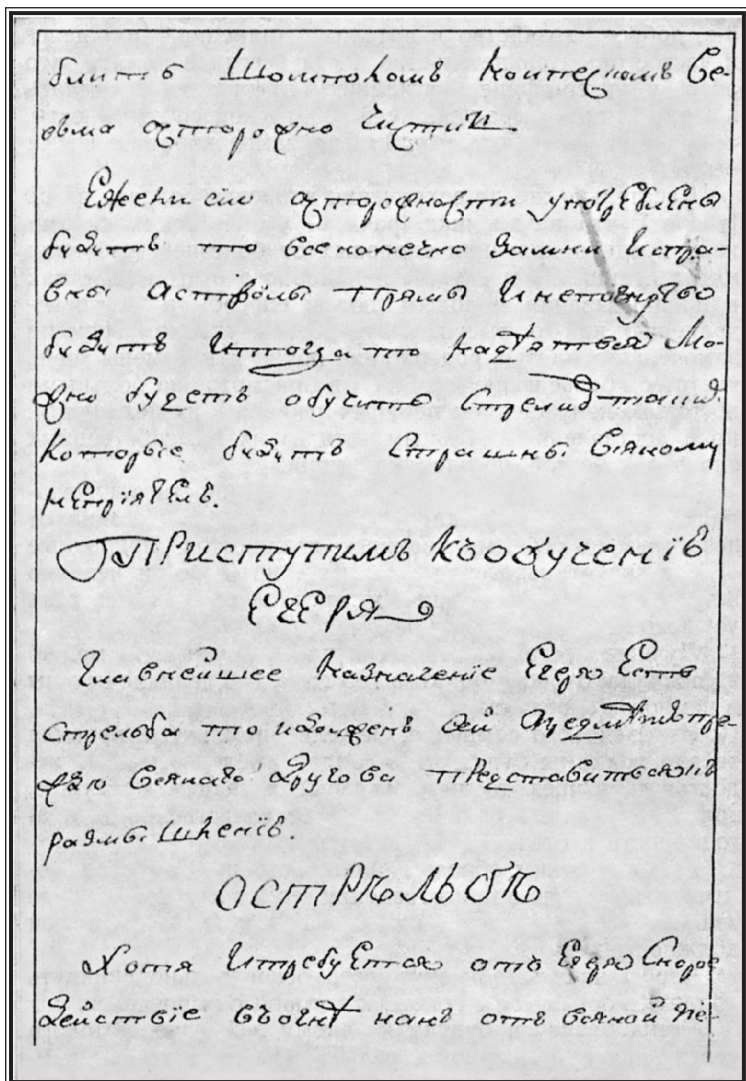 блить Шомполомъ которомъ Се-
овма осторожно чистить
Ежели сiю осторожности употреблены
будутъ то всеконечно замки исправ-
ны
будутъ и тогда то надѣятся Мо-
жно будетъ обучить стрелять
которые будутъ Страшны всякому
непрiятелю.
Приступимъ къ обученiю
Егеря
Главнейшее назначенiе Егеря Есть
стрельба то и долженъ сей предметъ пре-
жде всякаго другова представиться къ
размышленiю.
о стрѣльбѣ
Хотя и требуется отъ Егеря Скорое
действiе въ огнѣ какъ отъ всякой пе-